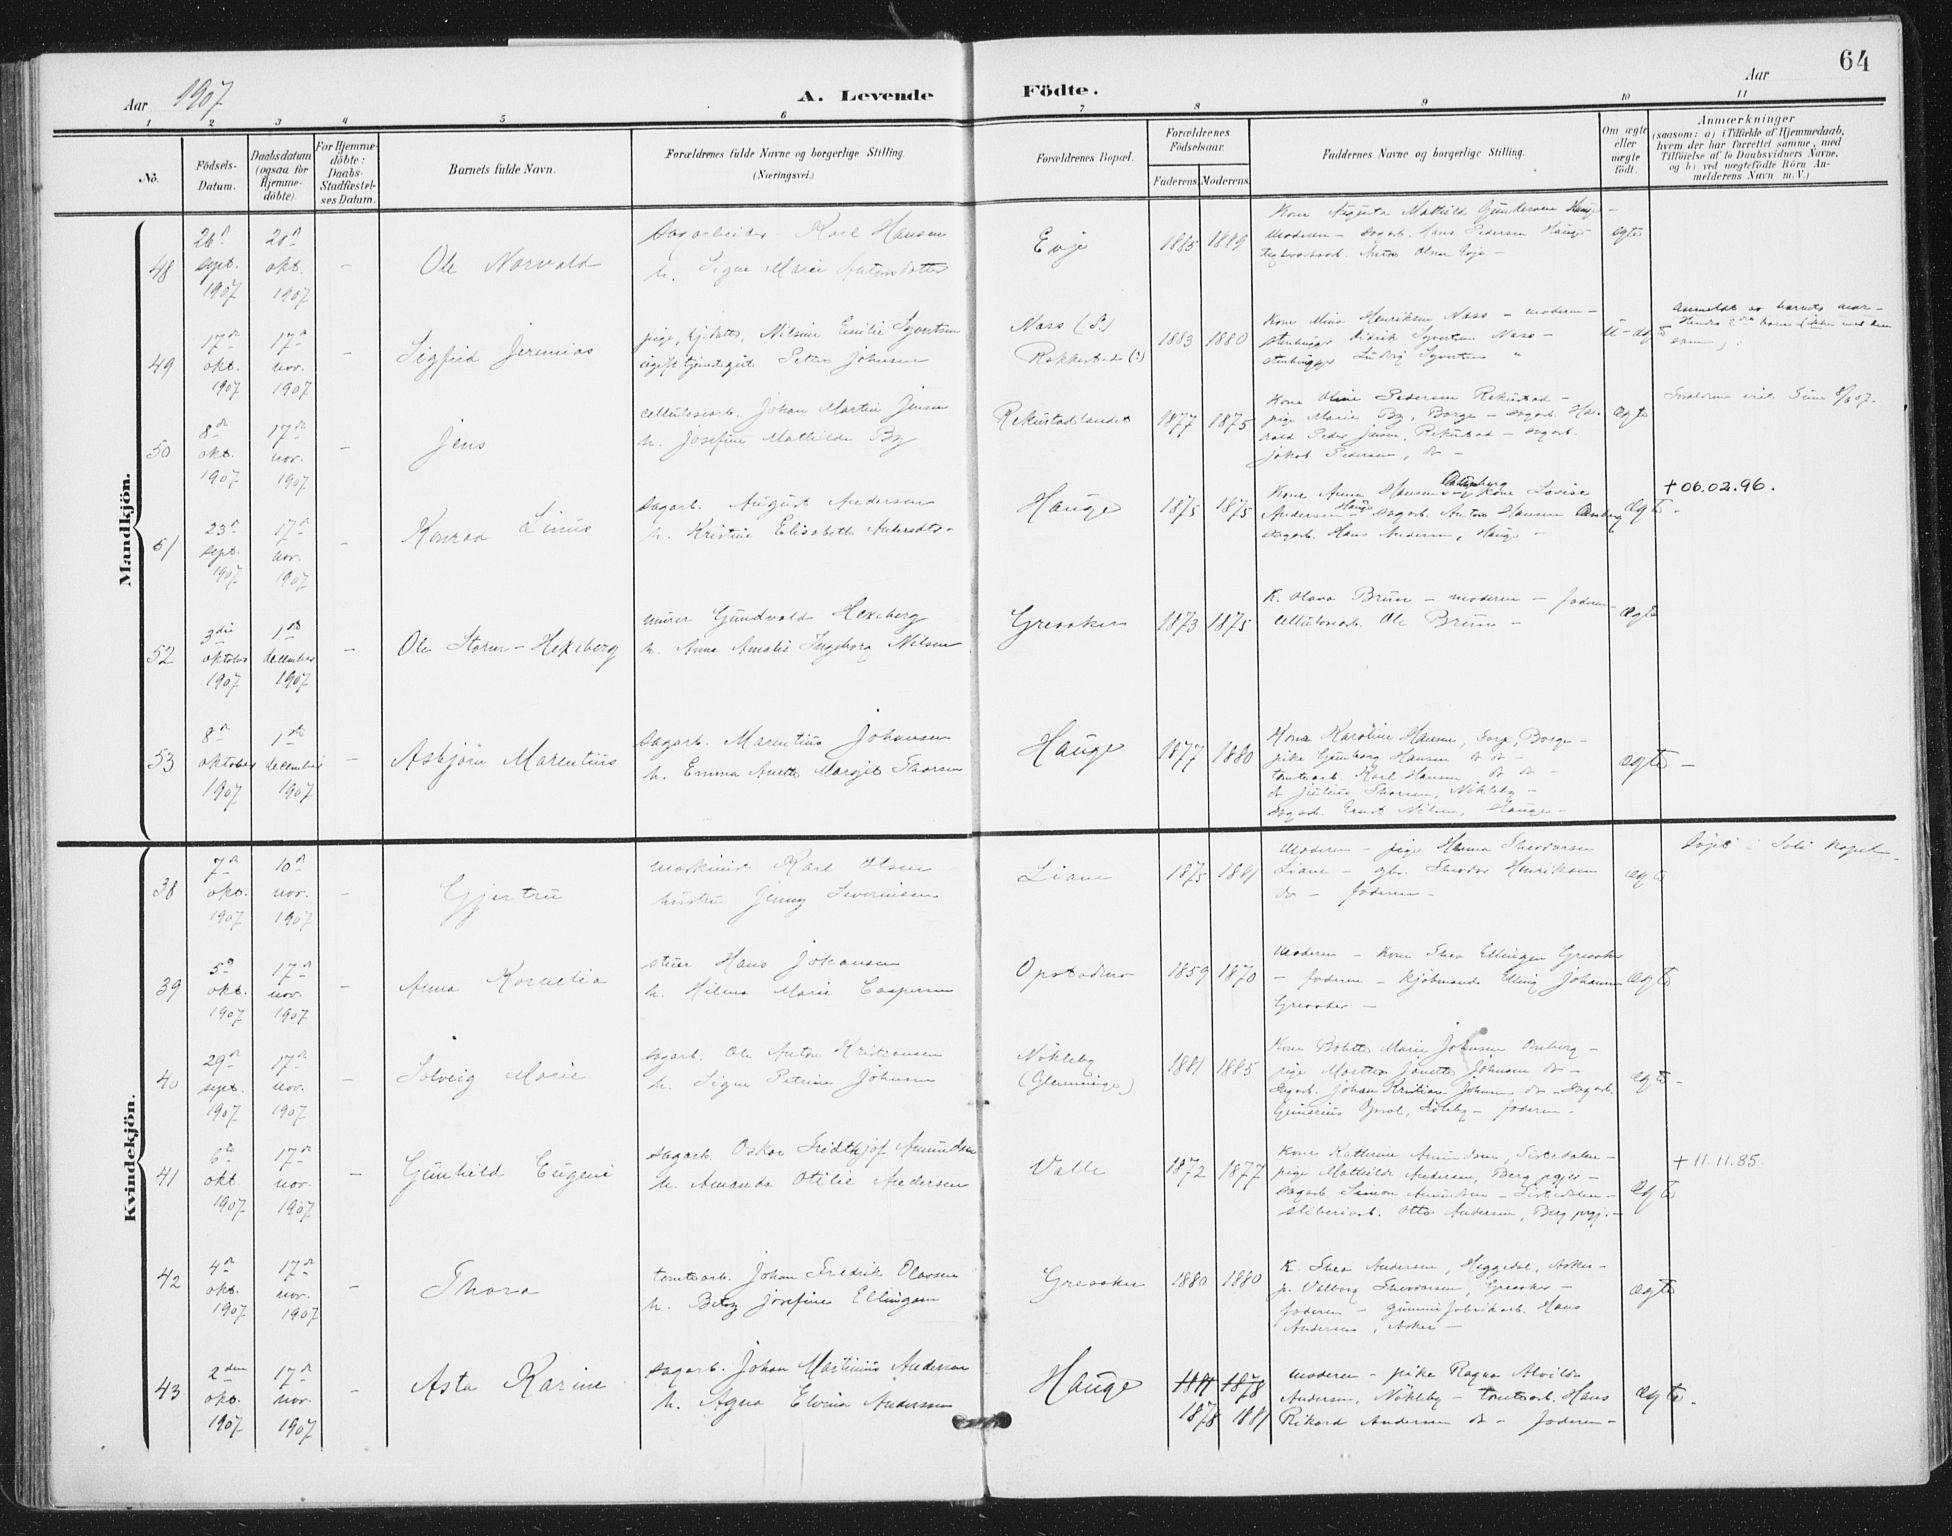 64
Aar 1907
A. Levende Födte.
Aar
1 2 3 4 5 6 7 8 9 10 11
No.
Födsels-Datum.
Daabsdatum (ogsaa for Hjemmedöbte).
For Hjemmedöbte: Daabs-Stadfæstelses Datum.
Barnets fulde Navn.
Forældrenes fulde Navne og borgerlige Stilling.
(Næringsvei.)
Forældrenes Bopæl.
Forældrenes Födselsaar.
Faderens. Moderens.
Faddernes Navne og borgerlige Stilling.
Om ægte eller uægte födt.
Anmærkninger
(saasom: a) i Tilfælde af Hjemmedaab, hvem der har forrettet samme, med Tilföielse af to Daabsvidners Navne, og b) ved uægtefödte Börn Anmelderens Navn m. V.)
Mandkjön.
48
26de sept. 1907
20de okt. 1907
-
Ole Norvald
Sagarbeider Karl Hansen
h. Signe Marie Antonsdatter
Evje
1885 1889
Kone Augusta Mathild Gundersen Hauge -
Moderen - sagarb. Hans Pedersen Hauge
Anton Olsen Evje -
ægte
49
17de okt. 1907
17de nov. 1907
-
Sigfred Jeremias
pige, Nilsine Emilie Syvertsen
Petter Johansen
Næss (S.)
Rokkestad (?)
1883 1880
Kone Mina Henriksen Næss - moderen -
stenhugger Didrik Syvertsen Næss -
stenhugger Ludvig Syvertsen "
u-ægte
Anmeldt av barnets mor -
50
8de okt. 1907
17de nov. 1907
-
Jens
cellulosearb. Johan Martin Jensen
h. Josefine Mathilde By
Rekustadlandet
1877 1875
Kone Oline Pedersen Rekustad -
pige Marie By, Borge - sagarb. Harald Peder Jensen, Rekustad - sagarb.
Jakob Pedersen, do -
ægte
51
23de sept. 1907
17de nov. 1907
-
Konrad Linus
Sagarb. August Andersen
h. Kristine Elisabeth
Hauge
1875 1875
Kone Anna Hansen - Kone Lovise
Andersen Hauge - sagarb. Anton Hansen
sagarb. Hans Andersen, Hauge -
ægte -
+ 06.02.96.
52
3die oktober 1907
1ste december 1907
-
Ole Storm-Hexeberg
murer Gundvald Hexeberg
h. Anna Amalie Ingeborg Nilsen
Greaaker
1873 1875
K. Olava Bruun - moderen - faderen -
cellulosearb. Ole Bruun -
ægte
53
8de oktober 1907
1ste december 1907
-
Asbjörn Marentius
Sagarb. Marentius Johansen
h. Emma Anette Margit Thorsen
Hauge
1877 1880
Kone Karoline Hansen, Torp, Borge -
pike Gunborg Hansen do do -
tomtearb. Karl Hansen do do -
do Julius Thorsen, Nökleby -
sagarb. Ernst Nilsen, Hauge -
ægte -
Kvindekjön.
38
7de okt. 1907
10de nov. 1907
-
Gjertru
maskinist Karl Olsen
hustru Jenny Severinsen
Liane
1875 1881
Moderen - pige Hanna Theodorsen
Liane - Theodor Henriksen
do - faderen -
ægte
Döpt i Soli kapel -
39
5te okt. 1907
17de nov. 1907
-
Anna Kornelia
Hans Johansen
h. Hilma Marie Caspersen
Opstadmo
1859 1870
Moderen - Kone Thea Ellingsen Greaaker
- faderen - kjöbmand Elling Johansen
Greaaker -
ægte
40
29de sept. 1907
17de nov. 1907
-
Solveig Marie
Sagarb. Ole Anton Kristiansen
h. Signe Petrine Johansen
Nökleby
(Glemminge)
1881 1885
Kone Bolette Marie Johnsen -
pige Marthea Jonette Johnsen do -
Sagarb. Johan Kristian Johnsen do - sagarb.
faderen -
ægte -
41
6te okt. 1907
17de nov. 1907
-
Gunhild Eugenie
Sagarb. Oskar Fridthjof Amundsen
h. Amanda Otilie Andersen
Valle
1872 1877
Kone Kathrine Amundsen, Tistedalen -
pige Mathilde Andersen, Berg pgj. -
sagarb. Simon Amundsen - Tistedalen -
sliberiarb. Otto Andersen, Berg prgj. -
ægte
+ 11.11.85.
42
4de okt. 1907
17de nov. 1907
-
Thora
tomtearb. Johan Fredrik Olavsen
h. Betzy Josefine Ellingsen
Greaaker
1880 1880
K. Thea Andersen, Heggedal, Asker -
p. Valborg Theodorsen, Greaaker -
faderen - gummifabrikarb. Hans
Andersen, Asker -
ægte
43
2den okt. 1907
17de nov. 1907
-
Asta Karine
Sagarb. Johan Martinius Andersen
h. Agna Elvina Andersen
Hauge
1881 1878
1878 1881
moderen - pike Ragna Alvilde
Andersen, Nökleby - tomtearb. Hans
Rikard Andersen do - faderen -
ægte -